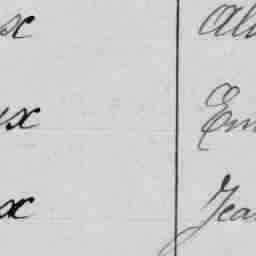 x Ali
ux Em
x Jea